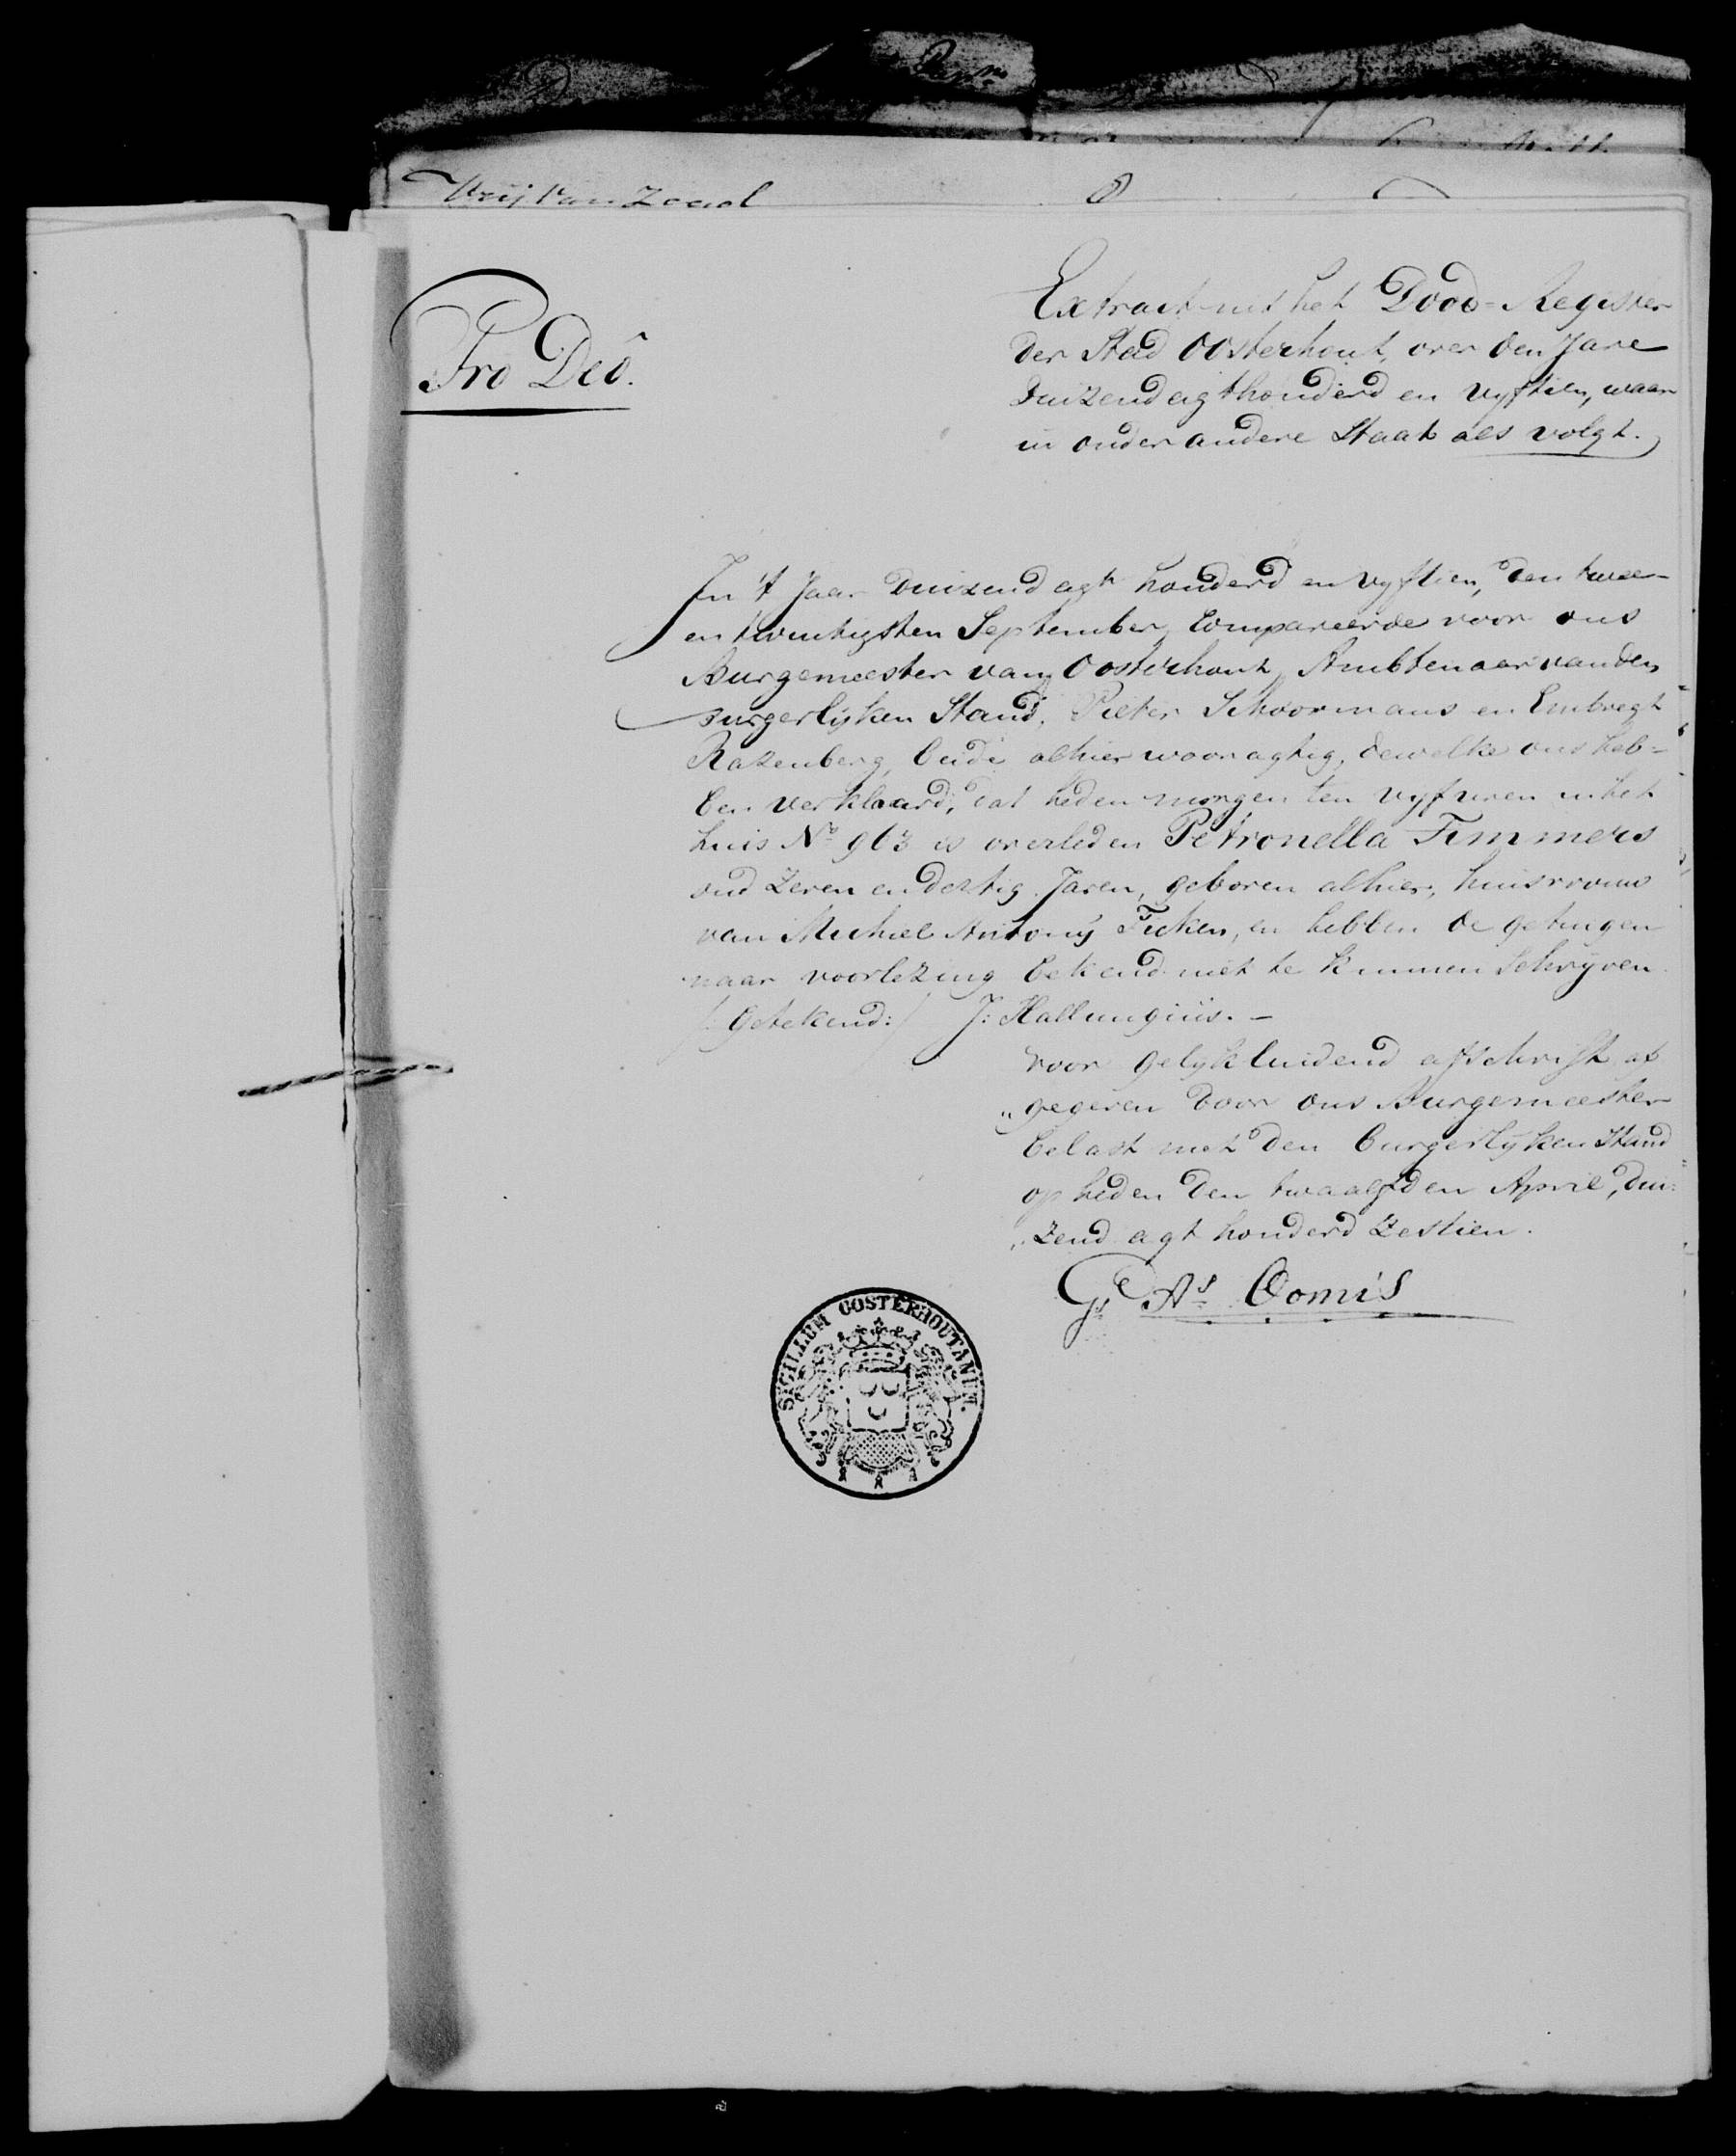 Vrij van Zegel
Pro Deô.
Extract uit het Dood-Register
der Stad Oosterhout, over den Jare
Duizend agthonderd en vyftien, waar
in onder andere Staat als volgt.
In 't Jaar Duizend agt honderd en vyftien, den twee-
en twintigsten September, Compareerde voor ons
Burgemeester van Oosterhout, Ambtenaar van den
Burgerlijken Stand, Pieter Schoormans en Embregt
Razenberg, beide alhier woonagtig, dewelke ons heb-
ben verklaard, dat heden morgen ten vyf uren in het
huis No 963 is overleden Petronella Timmers
oud Zeven en dertig Jaren, geboren alhier, huisvrouw
van Michiel Antony Ficken, en hebben de getuigen
naar voorlezing bekend niet te kunnen Schryven
/: Getekend: / J: Hallungius. -
voor gelykluidend afschrift af
„gegeven door ons Burgemeester
belast met den burgerlyken Stand
op heden den twaalfden April, dui:
„zend agt honderd Zestien.
Gs As Oomis
SIGILLUM OOSTERHOUTANUM.